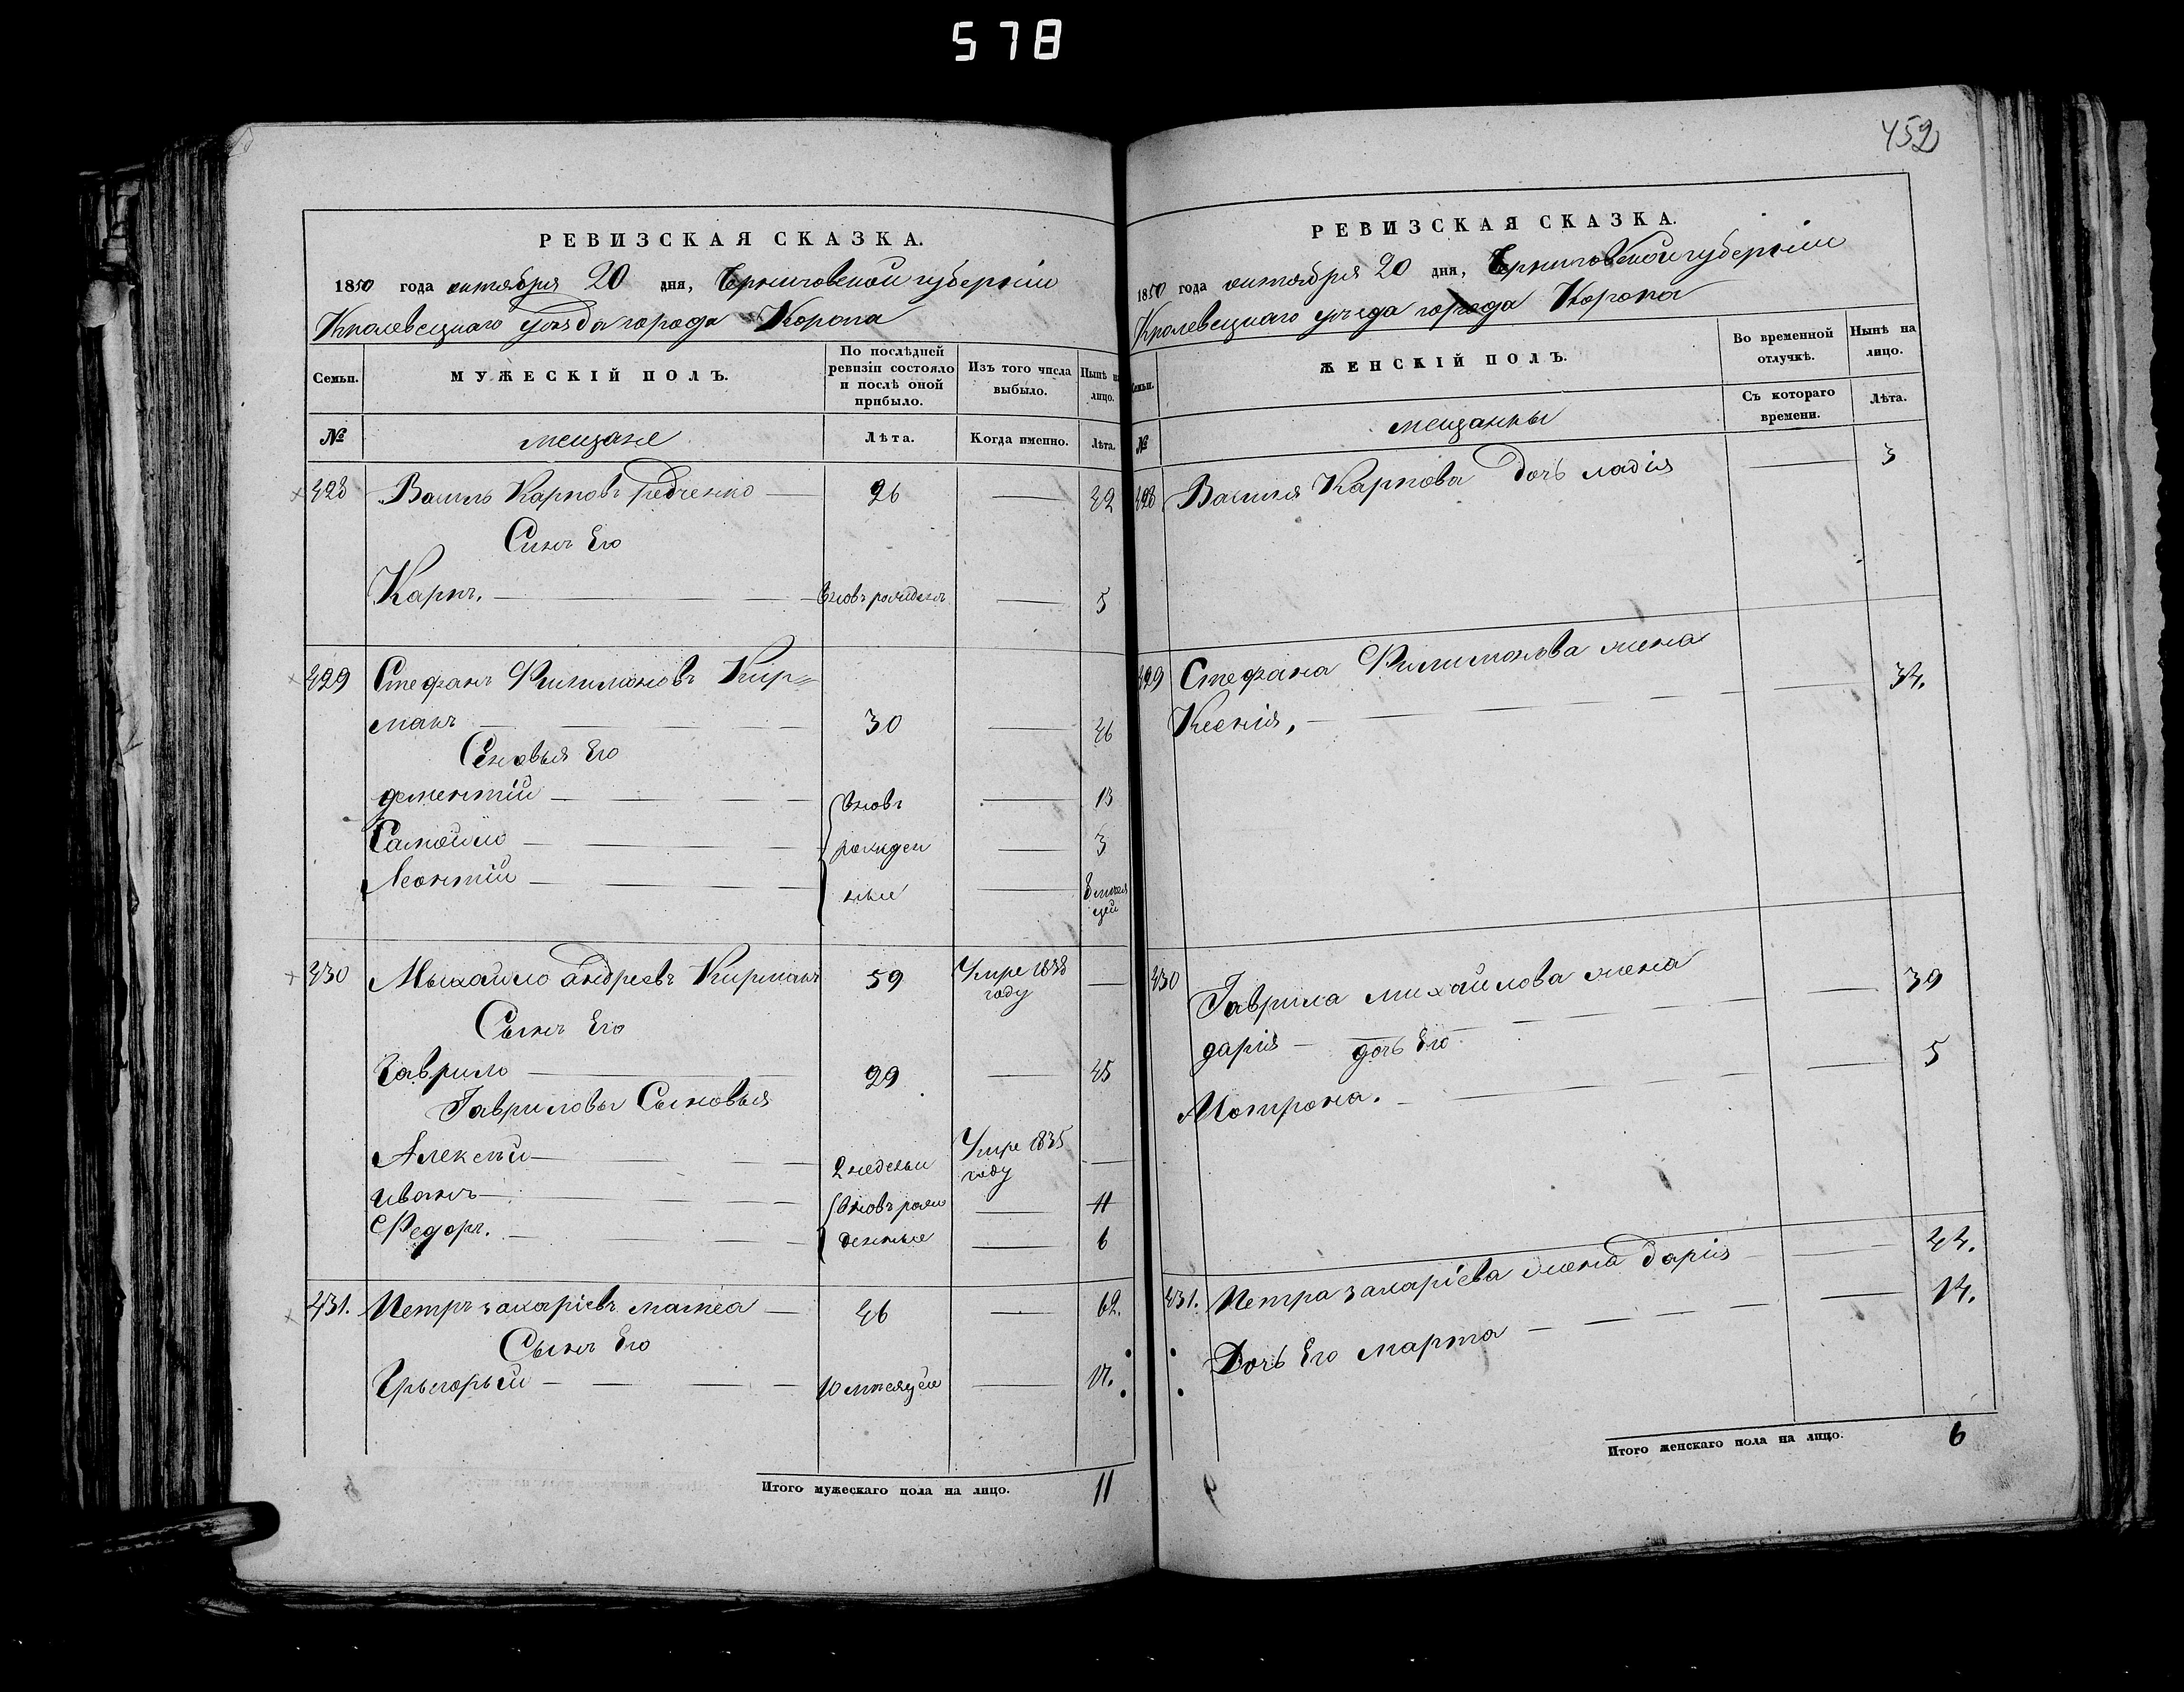 578
РЕВИЗСКАЯ СКАЗКА.
1850 года октября 20 дня, Черниговской губерніи
Кролевецкаго уѣзда города Коропа
Семьи.
МУЖЕСКІЙ ПОЛЪ.
По послѣдней ревизіи состояло и послѣ оной прибыло.
Изъ того числа выбыло.
Нынѣ на лицо.
№
мещане
Лѣта.
Когда именно.
Лѣта.
428 Василь Карповъ Редченко 26 42
Синъ Его
Карпъ. вновь рожденъ 5
429 Стефанъ Филимоновъ Кир=
манъ 30 46
Сыновья Его
дементій вновъ 13
Самойло рожден 3
Леонтій ные 8 меся
цей
430 Мыхайло андреевъ Кирманъ 59 Умре 1838
году
Сынъ Его
Гаврило 29 45
Гавриловы Сыновья
Алексѣй 2 недельи Умре 1835
году
иванъ вновъ рож 11
Федоръ. денные 6
431. Петръ захаріевъ 46 62.
Сынъ Его
Грыгорьй 10 месяцей 17.
Итого мужескаго пола на лицо. 11
452
РЕВИЗСКАЯ СКАЗКА.
1850 года октября 20 дня, Черниговской губерніи
Кролевецкаго уѣзда города Коропа
Семьи.
ЖЕНСКІЙ ПОЛЪ.
Во временной отлучкѣ.
Нынѣ на лицо.
№
мещанки
Съ котораго времени.
Лѣта.
428 Василя Карпова дочь 3
429 Стефана Филимонова жена
Ксенія, 34.
430 Гаврила михайлова жена
дарія 39
дочь Его
Мотрона. 5
431. Петра захаріева жена дарія 44.
Дочь Его марта 14.
Итого женскаго пола на лицо. 6